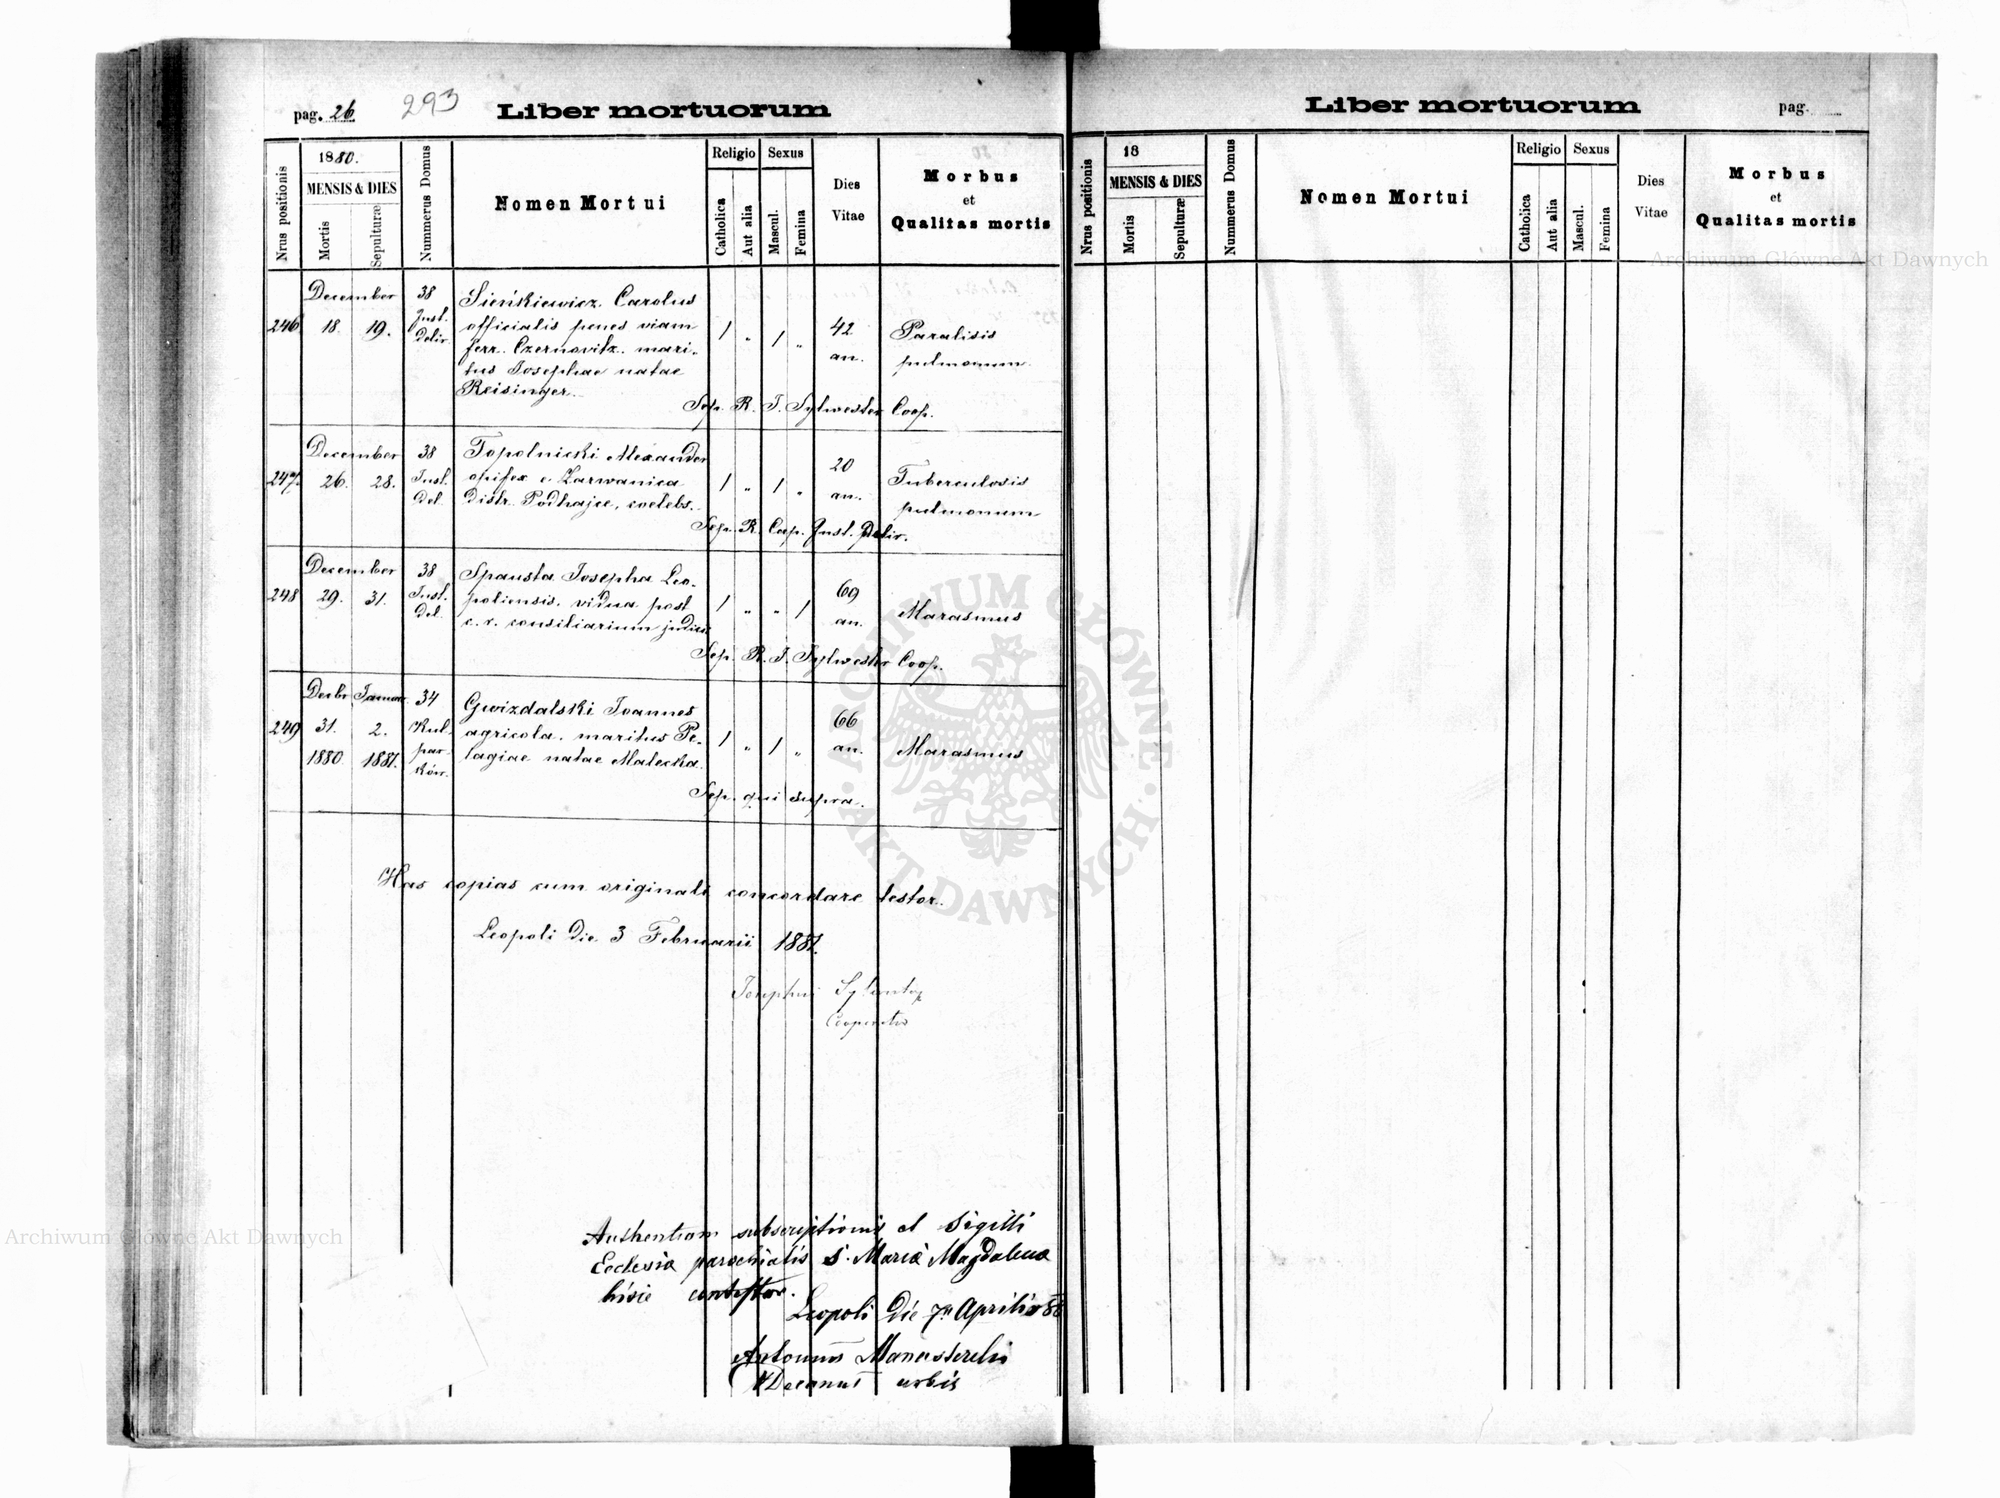 pag. 26
293
Liber mortuorum
Nrus positionis
1880.
MENSIS & DIES
Mortis
Sepulturæ
Nummerus Domus
Nomen Mortui
Religio
Catholica
Aut alia
Sexus
Mascul.
Femina
Dies
Vitae
Morbus
et
Qualitas mortis
246
December
18. 19.
38
Inst.
Delir.
Sieńkiewicz Carolus
officialis penes viam
ferr. Czernovitz. mari-
tus Josephae natae
Reisinger.
1 " 1 "
42
an.
Paralisis
pulmonum
Sep. R. J. Sylwester Coop.
247.
December
26. 28.
38
Inst.
Del.
Topolnicki Alexander
opifex e Zarwanica
Distr. Podhajce, coelebs.
1 " 1 "
20
an.
Tuberculosis
pulmonum
Sep. R. Coop. Inst. Delir.
248
December
29. 31.
38
Inst.
Del.
Spausta Josepha Leo-
poliensis. vidua post
c. r. consiliarium judicii
1 " " 1
69
an.
Marasmus
Sep. R. J. Sylwester Coop.
249
Decbr Januar
31. 2.
1880 1881.
34
Kul-
par-
ków.
Gwizdalski Joannes
agricola. maritus Pe-
lagiae natae Malecka
1 " 1 "
66
an.
Marasmus
Sep. qui supra.
Has copias cum originali concordare testor.
Leopoli die 3 Februarii 1881.
Josephus Sylwester
Cooperator
subscriptionis et Sigilli
Ecclesia parochialis S. Maria Magdalena
hisie contestor.
Leopoli Die 7 Aprilis 88
Antonius
Decanus urbis
Liber mortuorum
pag.
Nrus positionis
18
MENSIS & DIES
Mortis
Sepulturæ
Nummerus Domus
Nomen Mortui
Religio
Catholica
Aut alia
Sexus
Mascul.
Femina
Dies
Vitae
Morbus
et
Qualitas mortis
Archiwum Główne Akt Dawnych
Archiwum Główne Akt Dawnych
ARCHIWUM GŁÓWNE · AKT DAWNYCH ·